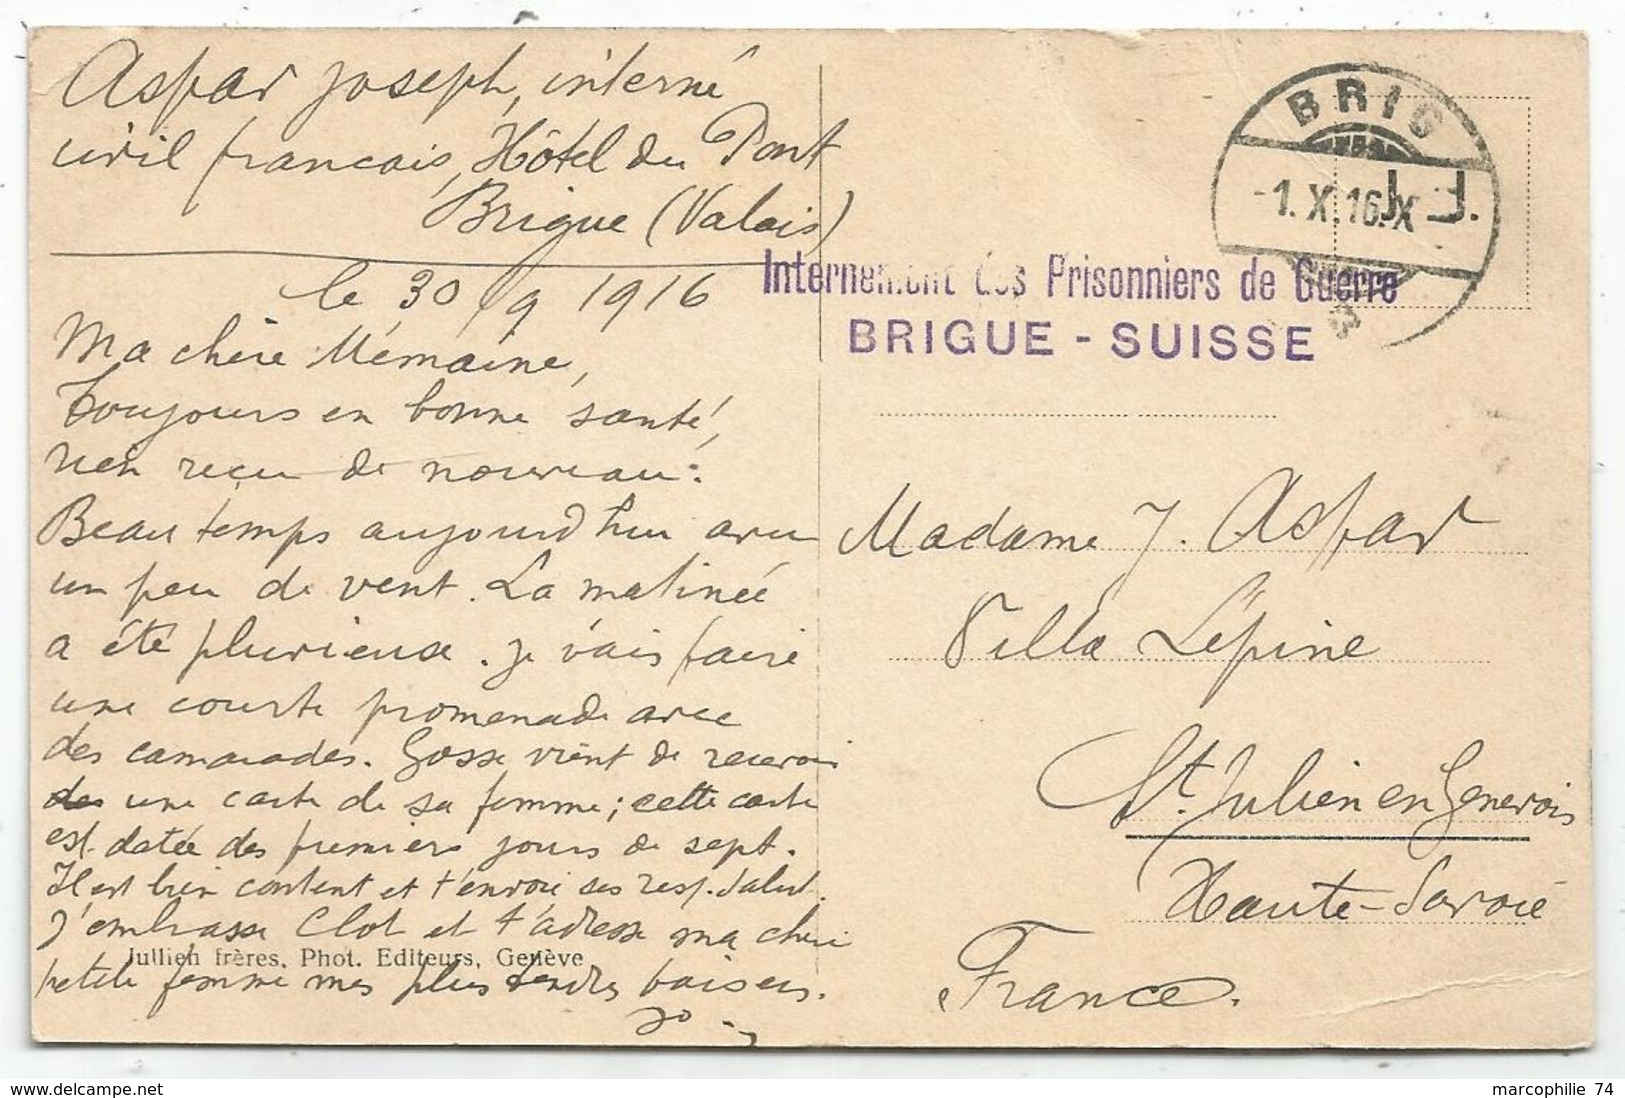 Aspar Joseph, interné
civil francais, Hôtel du Pont
Brigue (Valais)
le 30/9 1916
Ma chère Mémaine,
Toujours en bonne santé,
rien reçu de nouveau.
Beau temps aujourd'hui avec
un peu de vent. La matinée
a été pluvieuse. Je vais faire
une courte promenade avec
des camarades. Gosse vient de recevoir
une carte de sa femme; cette carte
est datée des premiers jours de sept.
Il est bien content et t'envoie ses resp. salut.
J'embrasse Clot et t'adresse ma chère
petite femme mes plus tendres baisers.
Jo
Jullien frères, Phot. Editeurs, Genève
BRIG
-1. X. 16. X
Internement des Prisonniers de Guerre
BRIGUE - SUISSE
Madame J. Aspar
Villa Lépine
St. Julien en Genevois
Haute-Savoie
France.
www.delcampe.net
marcophilie 74